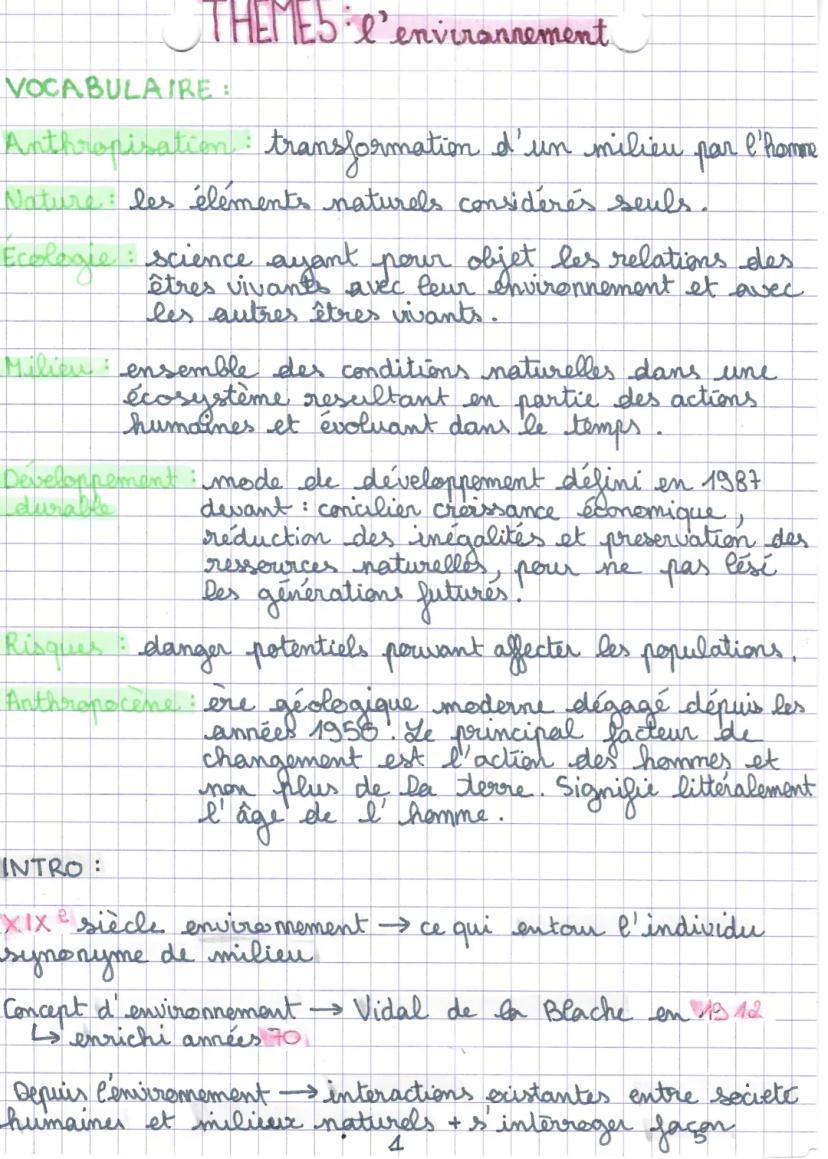 THEME5 : l'environnement
VOCABULAIRE :
Anthropisation : transformation d'un milieu par l'homme
Nature : les éléments naturels considérés seuls.
Écologie : science ayant pour objet les relations des
êtres vivants avec leur environnement et avec
les autres êtres vivants.
Milieu : ensemble des conditions naturelles dans une
écosystème resultant en partie des actions
humaines et évoluant dans le temps.
Développement : mode de développement défini en 1987
durable devant : concilier croissance économique,
réduction des inégalités et preservation des
ressources naturelles, pour ne pas lésé
les générations futures.
Risques : danger potentiels pouvant affecter les populations.
Anthropocène : ère géologique moderne dégagé dépuis les
années 1950. Le principal facteur de
changement est l'action des hommes et
non plus de la terre. Signifie littéralement
l'âge de l'homme.
INTRO :
XIXe siècle environnement → ce qui entour l'individu
synonyme de milieu
Concept d'environnement → Vidal de la Blache en 1912
↳ enrichi années 70
Depuis l'environnement → interactions existantes entre societé
humaines et milieux naturels + s'interroger façon
1
5